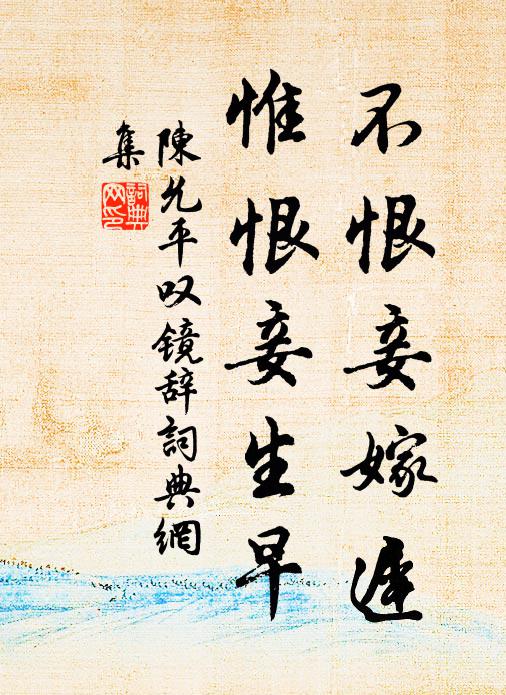 不恨妾嫁遲
惟恨妾生早
陳允平叹镜辞詞典網
集
詞典
网印